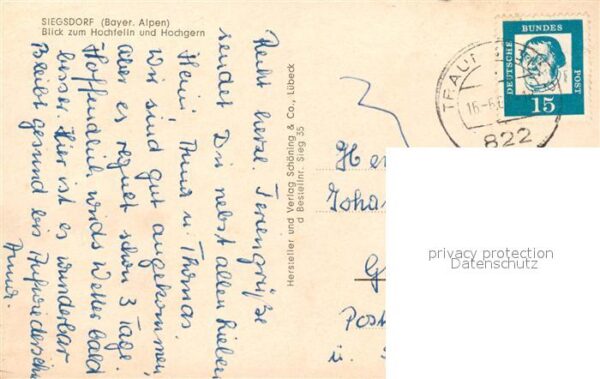 SIEGSDORF (Bayer. Alpen)
Blick zum Hochfelln und Hochgern
Recht herzl. Feriengrüße
sendet Dir nebst allen Lieben
Heini, Anna u. Thomas.
Wir sind gut angekommen,
aber es regnet schon 3 Tage.
Hoffendlich wirds Wetter bald
besser. Hier ist es wunderbar
Bleibt gesund ein Aufwiedersehn
Anna.
Hersteller und Verlag Schöning & Co., Lübeck
d Bestellnr. Sieg 35
TRAUN
822
DEUTSCHE
BUNDES
POST
15
He
Joha
G
Post
u. S
privacy protection
Datenschutz